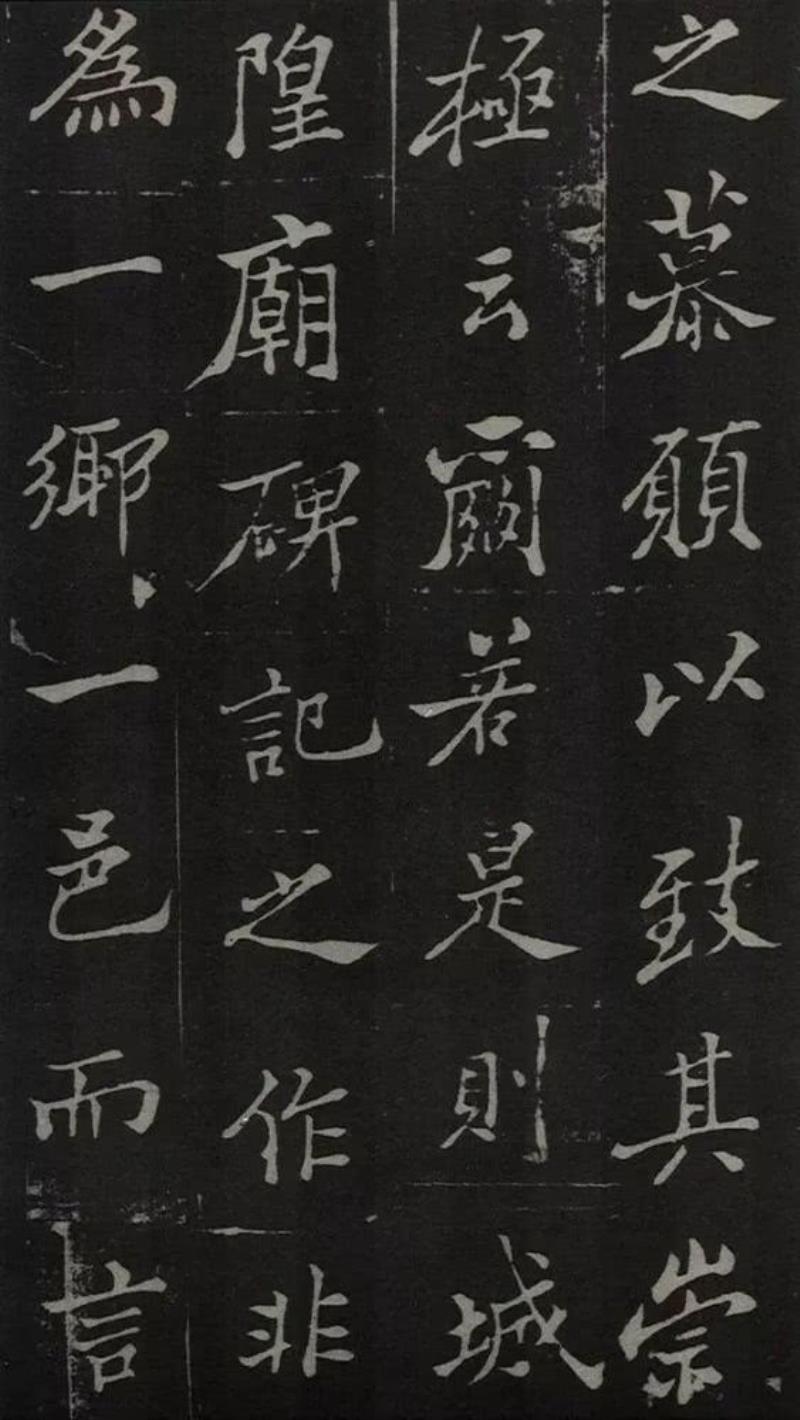 之慕願以致其崇
極云爾若是則城
隍廟碑記之作非
為一鄉一邑而言